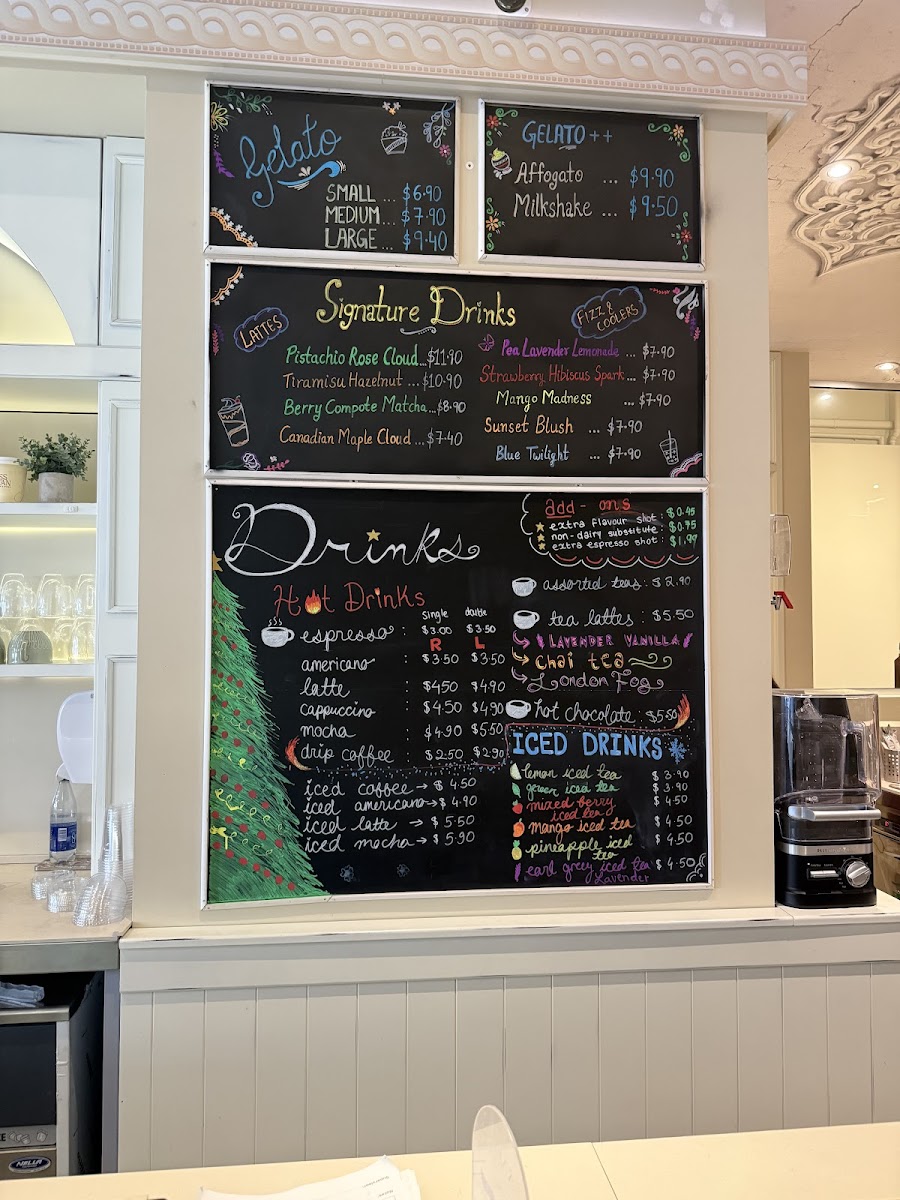 Gelato
SMALL ... $6.90
MEDIUM... $7.90
LARGE... $9.40
GELATO ++
Affogato ... $9.90
Milkshake ... $9.50
Signature Drinks
LATTES
Pistachio Rose Cloud...$11.90
Tiramisu Hazelnut ... $10.90
Berry Compote Matcha...$8.90
Canadian Maple Cloud ...$7.40
FIZZ &
COOLERS
Pea Lavender Lemonade ... $7.90
Strawberry Hibiscus Spark... $7.90
Mango Madness ... $7.90
Sunset Blush ... $7.90
Blue Twilight ... $7.90
Drinks
Hot Drinks
single double
espresso : $3.00 $3.50
R L
americano : $3.50 $3.50
latte : $4.50 $4.90
cappuccino : $4.50 $4.90
mocha : $4.90 $5.50
drip coffee : $2.50 $2.90
iced coffee → $4.50
iced americano → $4.90
iced latte → $5.50
iced mocha → $5.90
add-ons
extra flavour shot : $0.95
non-dairy substitute : $0.75
extra espresso shot : $1.99
assorted teas : $2.90
tea lattes : $5.50
LAVENDER VANILLA
chai tea
London Fog
hot chocolate : $5.50
ICED DRINKS
lemon iced tea $3.90
green iced tea $3.90
mixed berry $4.50
iced tea
mango iced tea $4.50
pineapple iced $4.50
tea
earl grey iced tea $4.50
Lavender